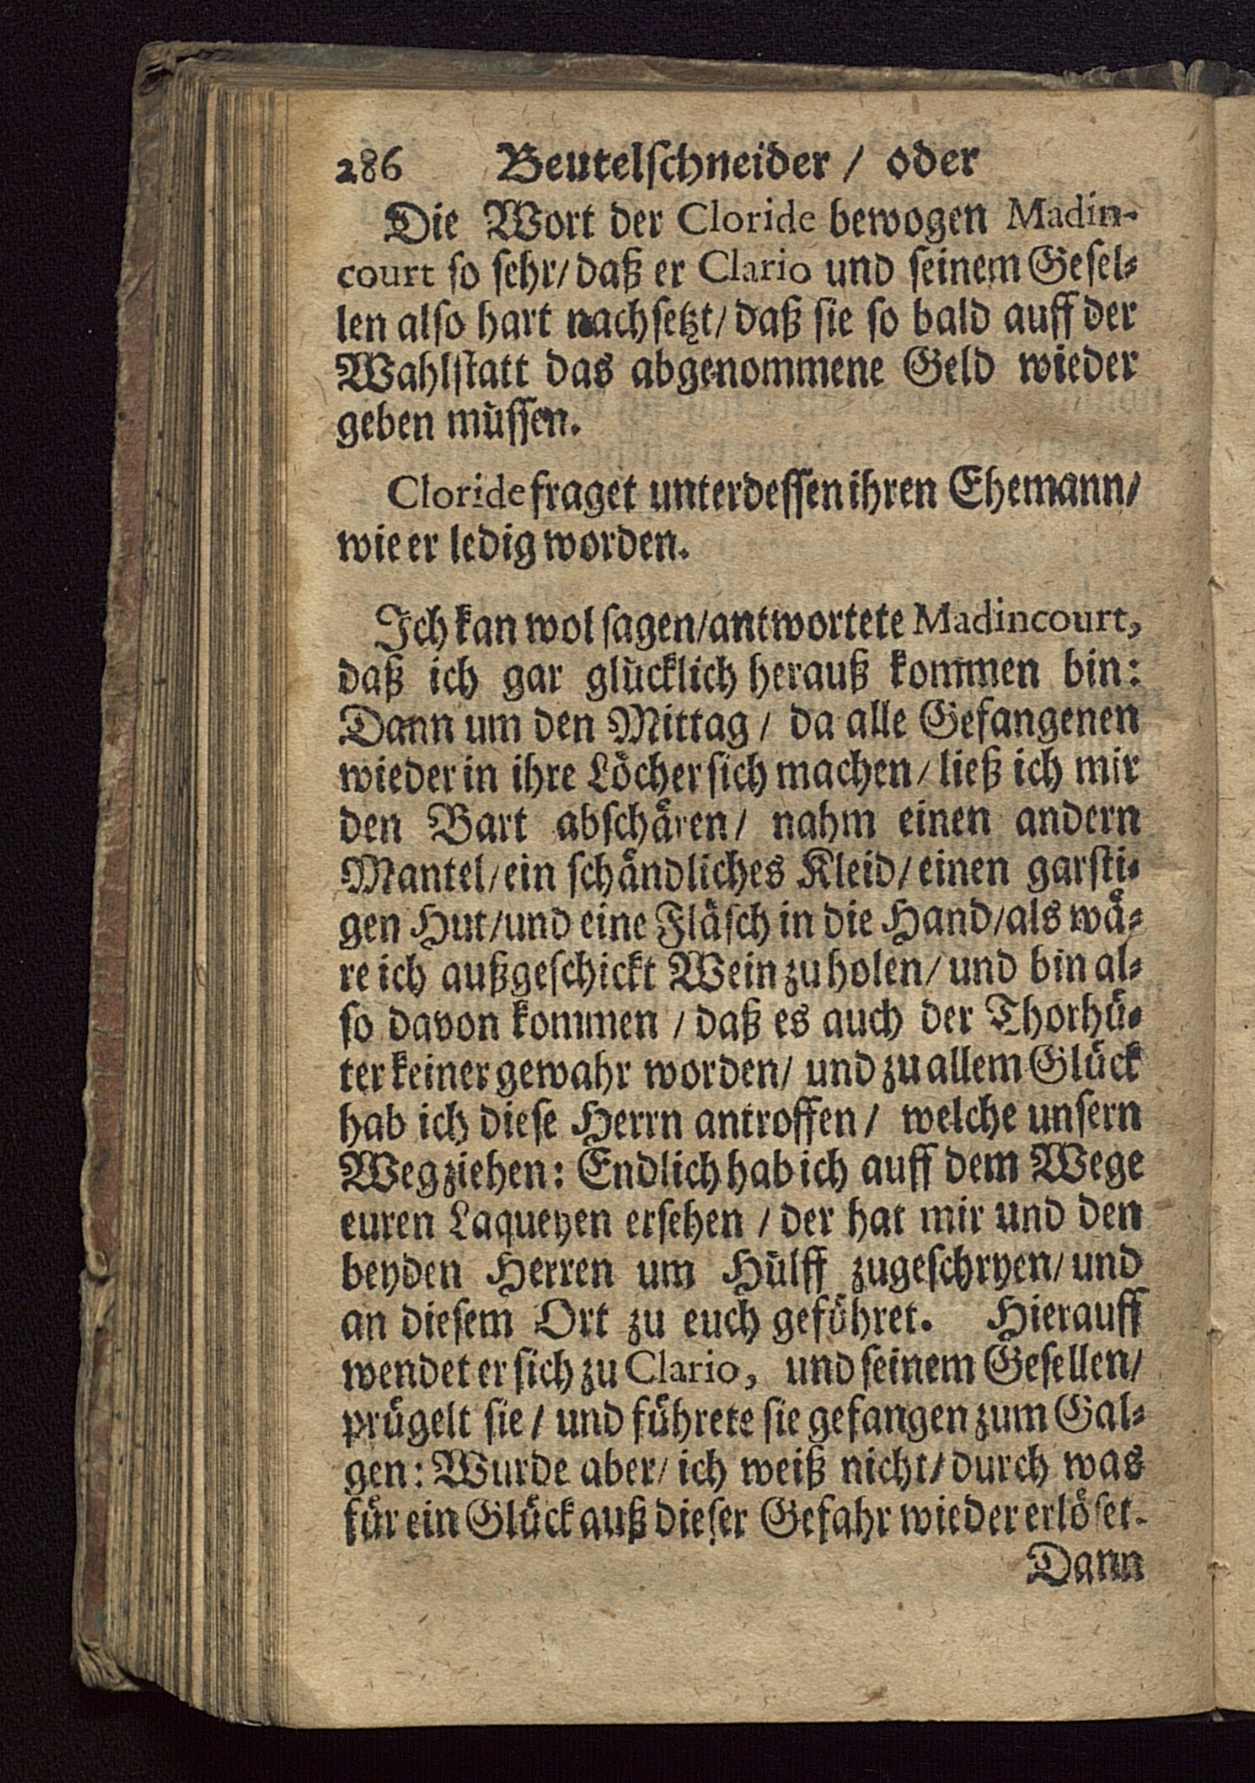 286 Beutelschneider / oder
Die Wort der Cloride bewogen Madin-
court so sehr/ daß er Clario und seinem Gesel-
len also hart nachsetzt/ daß sie so bald auff der
Wahlstatt das abgenommene Geld wieder
geben müssen.
Cloride fraget unterdessen ihren Ehemann/
wie er ledig worden.
Ich kan wol sagen/antwortete Madincourt,
daß ich gar glücklich herauß kommen bin:
Dann um den Mittag / da alle Gefangenen
wieder in ihre Löcher sich machen/ ließ ich mir
den Bart abschären/ nahm einen andern
Mantel/ein schändliches Kleid/einen garsti-
gen Hut/und eine Fläsch in die Hand/als wä-
re ich außgeschickt Wein zu holen/ und bin al-
so davon kommen / daß es auch der Thorhü-
ter keiner gewahr worden/ und zu allem Glück
hab ich diese Herrn antroffen/ welche unsern
Weg ziehen: Endlich hab ich auff dem Wege
euren Laqueyen ersehen / der hat mir und den
beyden Herren um Hülff zugeschryen/ und
an diesem Ort zu euch geführet. Hierauff
wendet er sich zu Clario, und seinem Gesellen/
prügelt sie / und führete sie gefangen zum Gal-
gen: Wurde aber/ ich weiß nicht/ durch was
für ein Glück auß dieser Gefahr wieder erlöset.
Dann